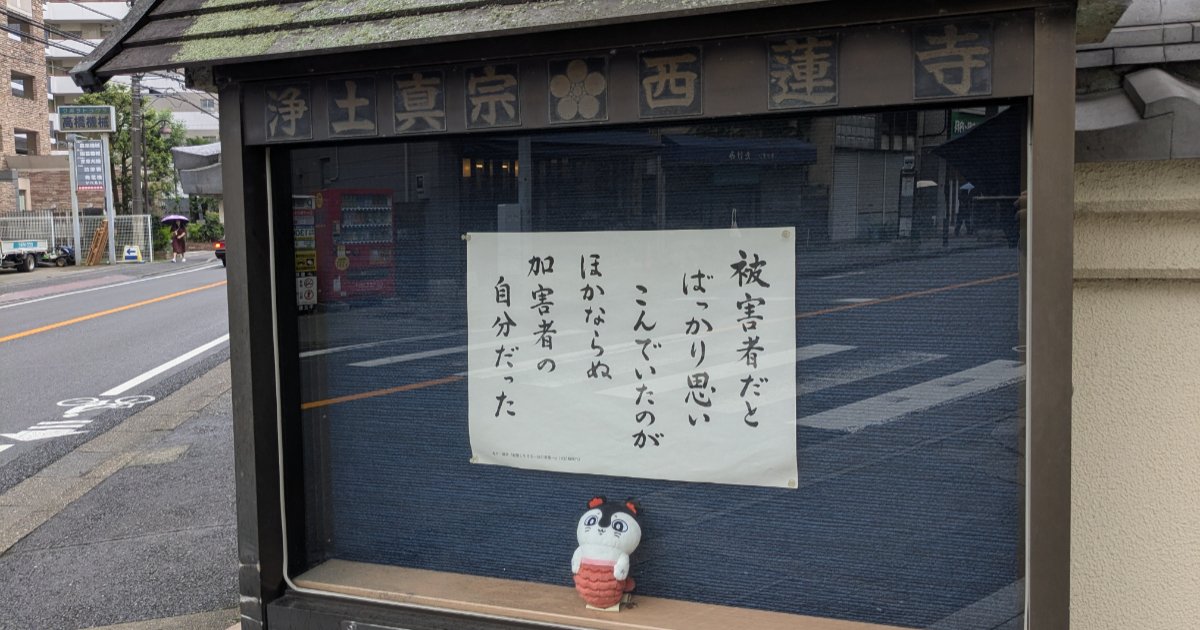 浄土真宗 西蓮寺
被害者だと
ばっかり思い
こんでいたのが
ほかならぬ
加害者の
自分だった
高橋機械